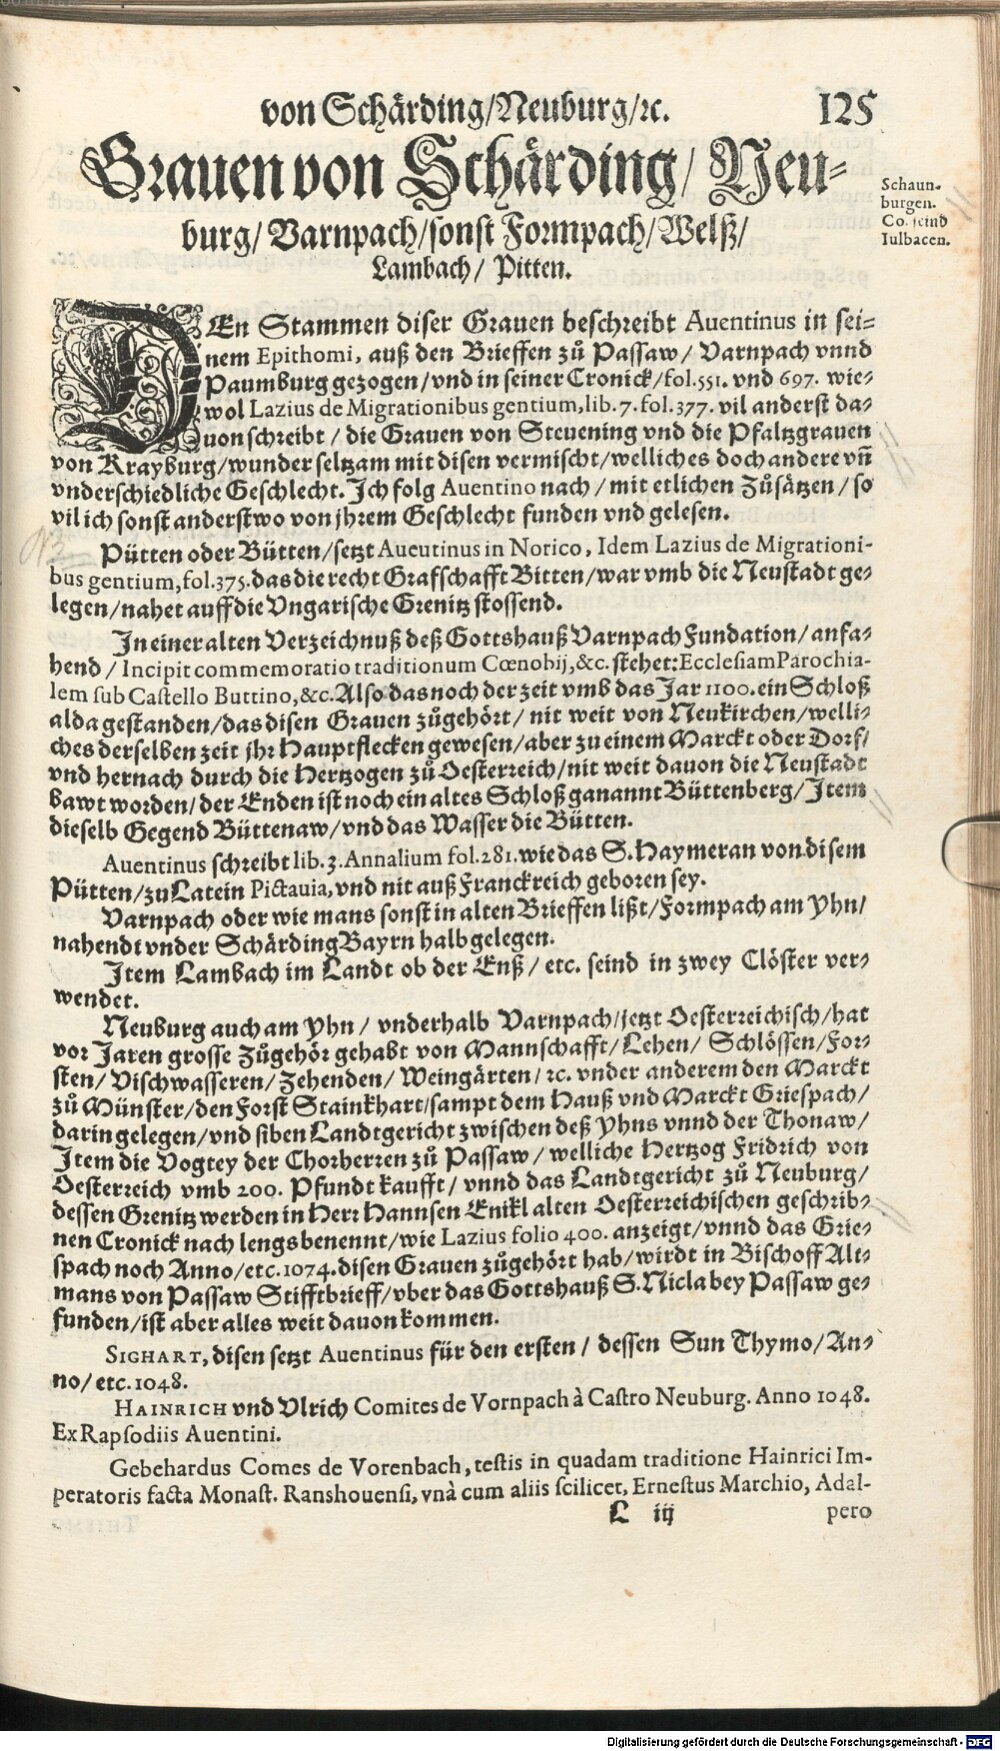 von Schärding/Neuburg/ꝛc. 125
Grauen von Schärding/ Neu-
burg/ Varnpach/sonst Formpach/Welß/
Lambach/ Pitten.
Schaun-
burgen.
Co. seind
Iulbacen.
DEn Stammen diser Grauen beschreibt Auentinus in sei-
nem Epithomi, auß den Brieffen zů Passaw/ Varnpach vnnd
Paumburg gezogen/vnd in seiner Cronick/fol.551. vnd 697. wie-
wol Lazius de Migrationibus gentium, lib. 7. fol. 377. vil anderst da-
uon schreibt/ die Grauen von Steuening vnd die Pfaltzgrauen
von Krayburg/wunder seltzam mit disen vermischt/welliches doch andere vñ
vnderschiedliche Geschlecht. Ich folg Auentino nach/ mit etlichen Zůsätzen/ so
vil ich sonst anderstwo von jhrem Geschlecht funden vnd gelesen.
Pütten oder Bütten/setzt Aueutinus in Norico, Idem Lazius de Migrationi-
bus gentium, fol.375. das die recht Grafschafft Bitten/war vmb die Neustadt ge-
legen/nahet auff die Vngarische Grenitz stossend.
In einer alten Verzeichnuß deß Gottshauß Varnpach Fundation/anfa-
hend/ Incipit commemoratio traditionum Cœnobij, &c. stehet: Ecclesiam Parochia-
lem sub Castello Buttino, &c. Also das noch der zeit vmb das Jar 1100. ein Schloß
alda gestanden/das disen Grauen zůgehört/ nit weit von Neukirchen/welli-
ches derselben zeit jhr Hauptflecken gewesen/aber zu einem Marckt oder Dorf/
vnd hernach durch die Hertzogen zů Oesterreich/nit weit dauon die Neustadt
bawt worden/der Enden ist noch ein altes Schloß ganannt Büttenberg/Item
dieselb Gegend Büttenaw/vnd das Wasser die Bütten.
Auentinus schreibt lib. 3. Annalium fol.281. wie das S. Haymeran von disem
Pütten/zu Latein Pictauia, vnd nit auß Franckreich geboren sey.
Varnpach oder wie mans sonst in alten Brieffen lißt/Formpach am Yhn/
nahendt vnder Schärding Bayrn halb gelegen.
Item Lambach im Landt ob der Enß/ etc. seind in zwey Clöster ver-
wendet.
Neuburg auch am Yhn/ vnderhalb Varnpach/jetzt Oesterreichisch/hat
vor Jaren grosse Zůgehör gehabt von Mannschafft/Lehen/ Schlössen/For-
sten/ Vischwasseren/ Zehenden/ Weingärten/ ꝛc. vnder anderem den Marckt
zů Münster/den Forst Stainkhart/sampt dem Hauß vnd Marckt Griespach/
darin gelegen/vnd siben Landtgericht zwischen deß Yhns vnnd der Thonaw/
Item die Vogtey der Chorherren zů Passaw/ welliche Hertzog Fridrich von
Oesterreich vmb 200. Pfundt kaufft/ vnnd das Landtgericht zů Neuburg/
dessen Grenitz werden in Herr Hannsen Enikl alten Oesterreichischen geschrib-
nen Cronick nach lengs benennt/wie Lazius folio 400. anzeigt/vnnd das Grie-
spach noch Anno/etc.1074. disen Grauen zůgehört hab/wirdt in Bischoff Alt-
mans von Passaw Stifftbrieff/vber das Gottshauß S. Nicla bey Passaw ge-
funden/ist aber alles weit dauon kommen.
SIGHART, disen setzt Auentinus für den ersten/ dessen Sun Thymo/An-
no/etc.1048.
HAINRICH vnd Vlrich Comites de Vornpach à Castro Neuburg. Anno 1048.
Ex Rapsodiis Auentini.
Gebehardus Comes de Vorenbach, testis in quadam traditione Hainrici Im-
peratoris facta Monast. Ranshouensi, vnà cum aliis scilicet, Ernestus Marchio, Adal-
L iij pero
Digitalisierung gefördert durch die Deutsche Forschungsgemeinschaft - DFG